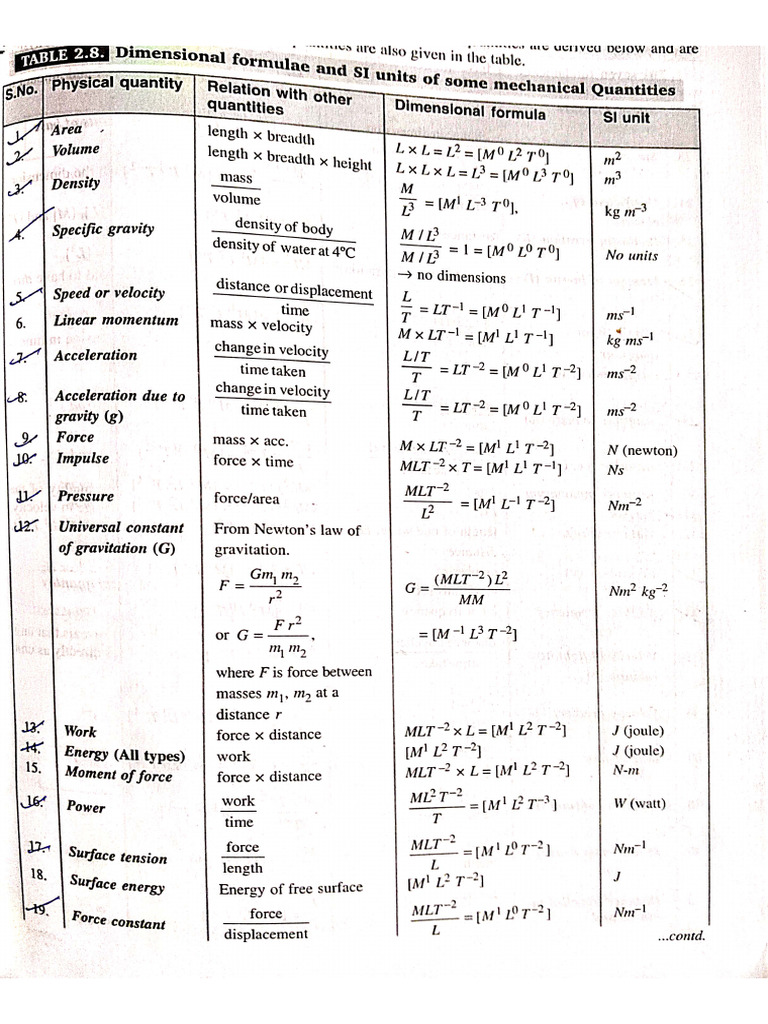 are also given in the table.
are derived below and are
TABLE 2.8. Dimensional formulae and SI units of some mechanical Quantities
S.No. Physical quantity Relation with other quantities Dimensional formula SI unit
1. Area length × breadth L × L = L² = [M⁰ L² T⁰] m²
2. Volume length × breadth × height L × L × L = L³ = [M⁰ L³ T⁰] m³
3. Density mass / volume M / L³ = [M¹ L⁻³ T⁰], kg m⁻³
4. Specific gravity density of body / density of water at 4°C M / L³ / M / L³ = 1 = [M⁰ L⁰ T⁰] No units
→ no dimensions
5. Speed or velocity distance or displacement / time L / T = LT⁻¹ = [M⁰ L¹ T⁻¹] ms⁻¹
6. Linear momentum mass × velocity M × LT⁻¹ = [M¹ L¹ T⁻¹] kg ms⁻¹
7. Acceleration change in velocity / time taken L/T / T = LT⁻² = [M⁰ L¹ T⁻²] ms⁻²
8. Acceleration due to gravity (g) change in velocity / time taken L/T / T = LT⁻² = [M⁰ L¹ T⁻²] ms⁻²
9. Force mass × acc. M × LT⁻² = [M¹ L¹ T⁻²] N (newton)
10. Impulse force × time MLT⁻² × T = [M¹ L¹ T⁻¹] Ns
11. Pressure force/area MLT⁻² / L² = [M¹ L⁻¹ T⁻²] Nm⁻²
12. Universal constant of gravitation (G) From Newton's law of gravitation.
F = Gm₁ m₂ / r² G = (MLT⁻²) L² / MM Nm² kg⁻²
or G = F r² / m₁ m₂, = [M⁻¹ L³ T⁻²]
where F is force between
masses m₁, m₂ at a
distance r
13. Work force × distance MLT⁻² × L = [M¹ L² T⁻²] J (joule)
14. Energy (All types) work [M¹ L² T⁻²] J (joule)
15. Moment of force force × distance MLT⁻² × L = [M¹ L² T⁻²] N-m
16. Power work / time ML² T⁻² / T = [M¹ L² T⁻³] W (watt)
17. Surface tension force / length MLT⁻² / L = [M¹ L⁰ T⁻²] Nm⁻¹
18. Surface energy Energy of free surface [M¹ L² T⁻²] J
19. Force constant force / displacement MLT⁻² / L = [M¹ L⁰ T⁻²] Nm⁻¹
...contd.